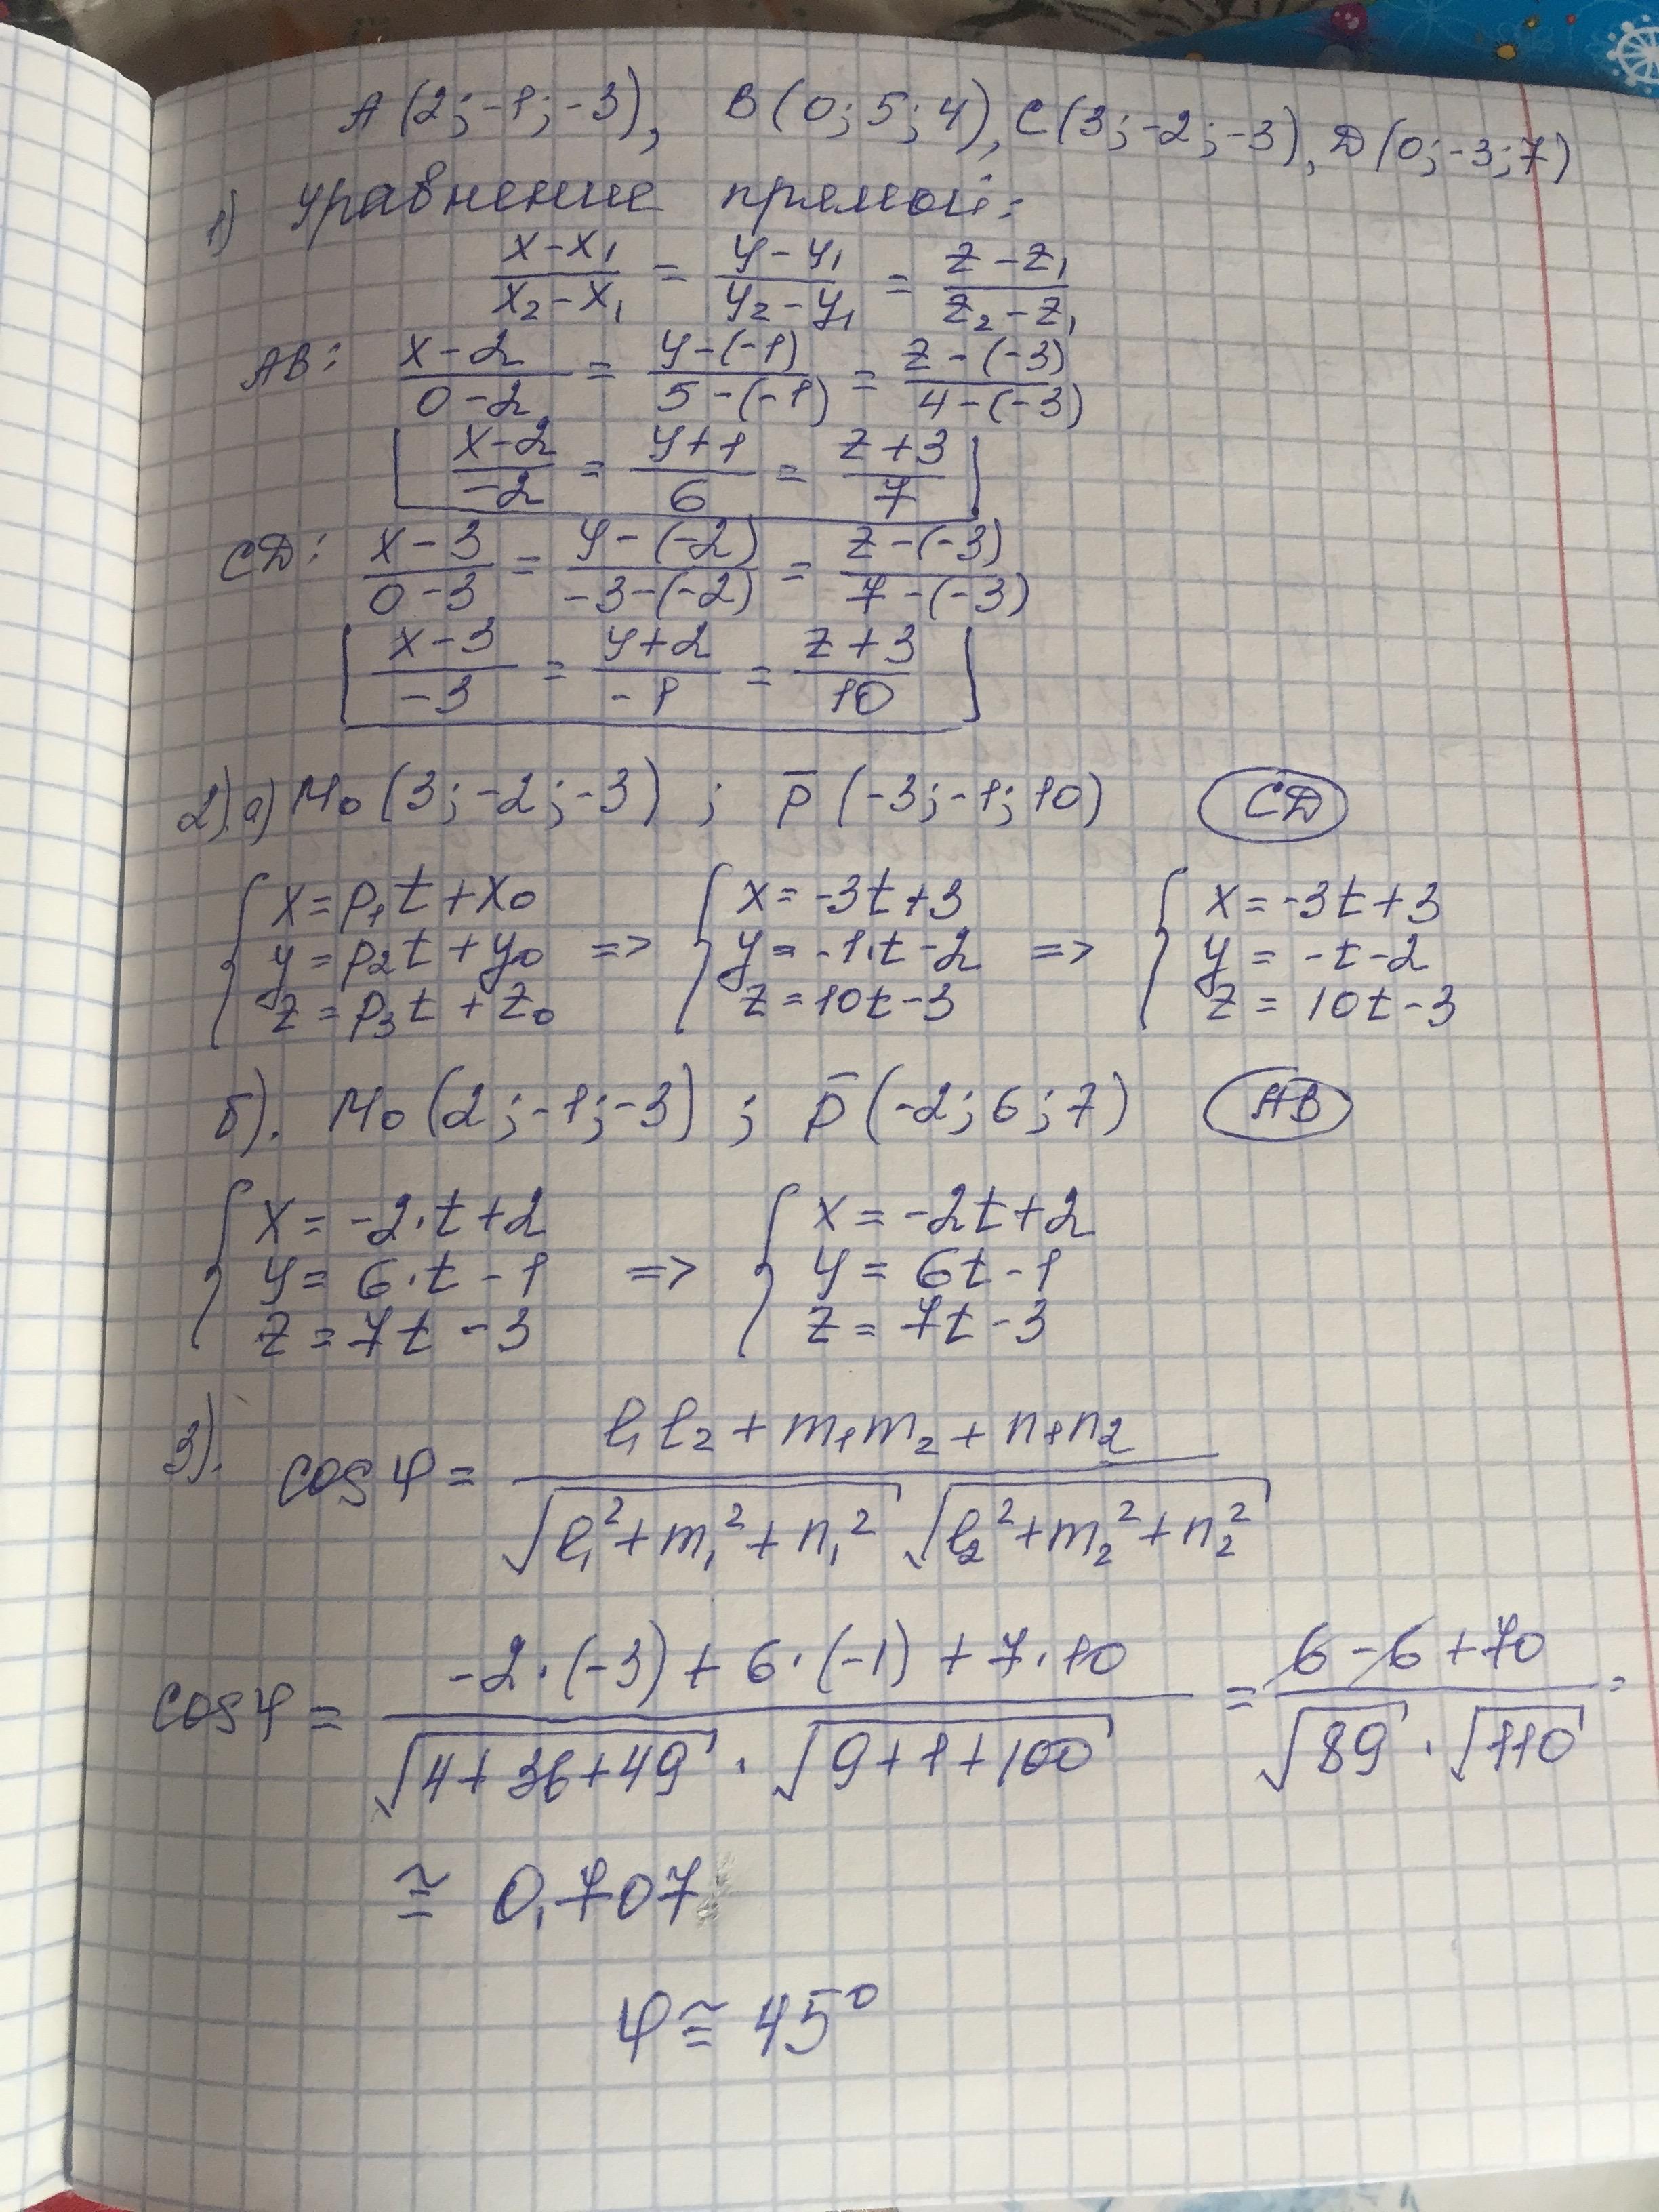 A (2; -1; -3), B (0; 5; 4), C (3; -2; -3), D (0; -3; 7)
1) Уравнение прямой:
(x - x₁)/(x₂ - x₁) = (y - y₁)/(y₂ - y₁) = (z - z₁)/(z₂ - z₁)
AB: (x - 2)/(0 - 2) = (y - (-1))/(5 - (-1)) = (z - (-3))/(4 - (-3))
[(x - 2)/(-2) = (y + 1)/6 = (z + 3)/7]
CD: (x - 3)/(0 - 3) = (y - (-2))/(-3 - (-2)) = (z - (-3))/(7 - (-3))
[(x - 3)/(-3) = (y + 2)/(-1) = (z + 3)/10]
2). а) M₀ (3; -2; -3) ; p̄ (-3; -1; 10) CD
{ x = p₁t + x₀ { x = -3t + 3 { x = -3t + 3
{ y = p₂t + y₀ => { y = -1·t - 2 => { y = -t - 2
{ z = p₃t + z₀ { z = 10t - 3 { z = 10t - 3
б). M₀ (2; -1; -3) ; p̄ (-2; 6; 7) AB
{ x = -2·t + 2 { x = -2t + 2
{ y = 6·t - 1 => { y = 6t - 1
{ z = 7t - 3 { z = 7t - 3
3). cos φ = (l₁l₂ + m₁m₂ + n₁n₂)/(√(l₁² + m₁² + n₁²) √(l₂² + m₂² + n₂²))
cos φ = (-2·(-3) + 6·(-1) + 7·10)/(√(4 + 36 + 49) · √(9 + 1 + 100)) = (6 - 6 + 70)/(√89 · √110) =
≅ 0,707
φ ≅ 45°